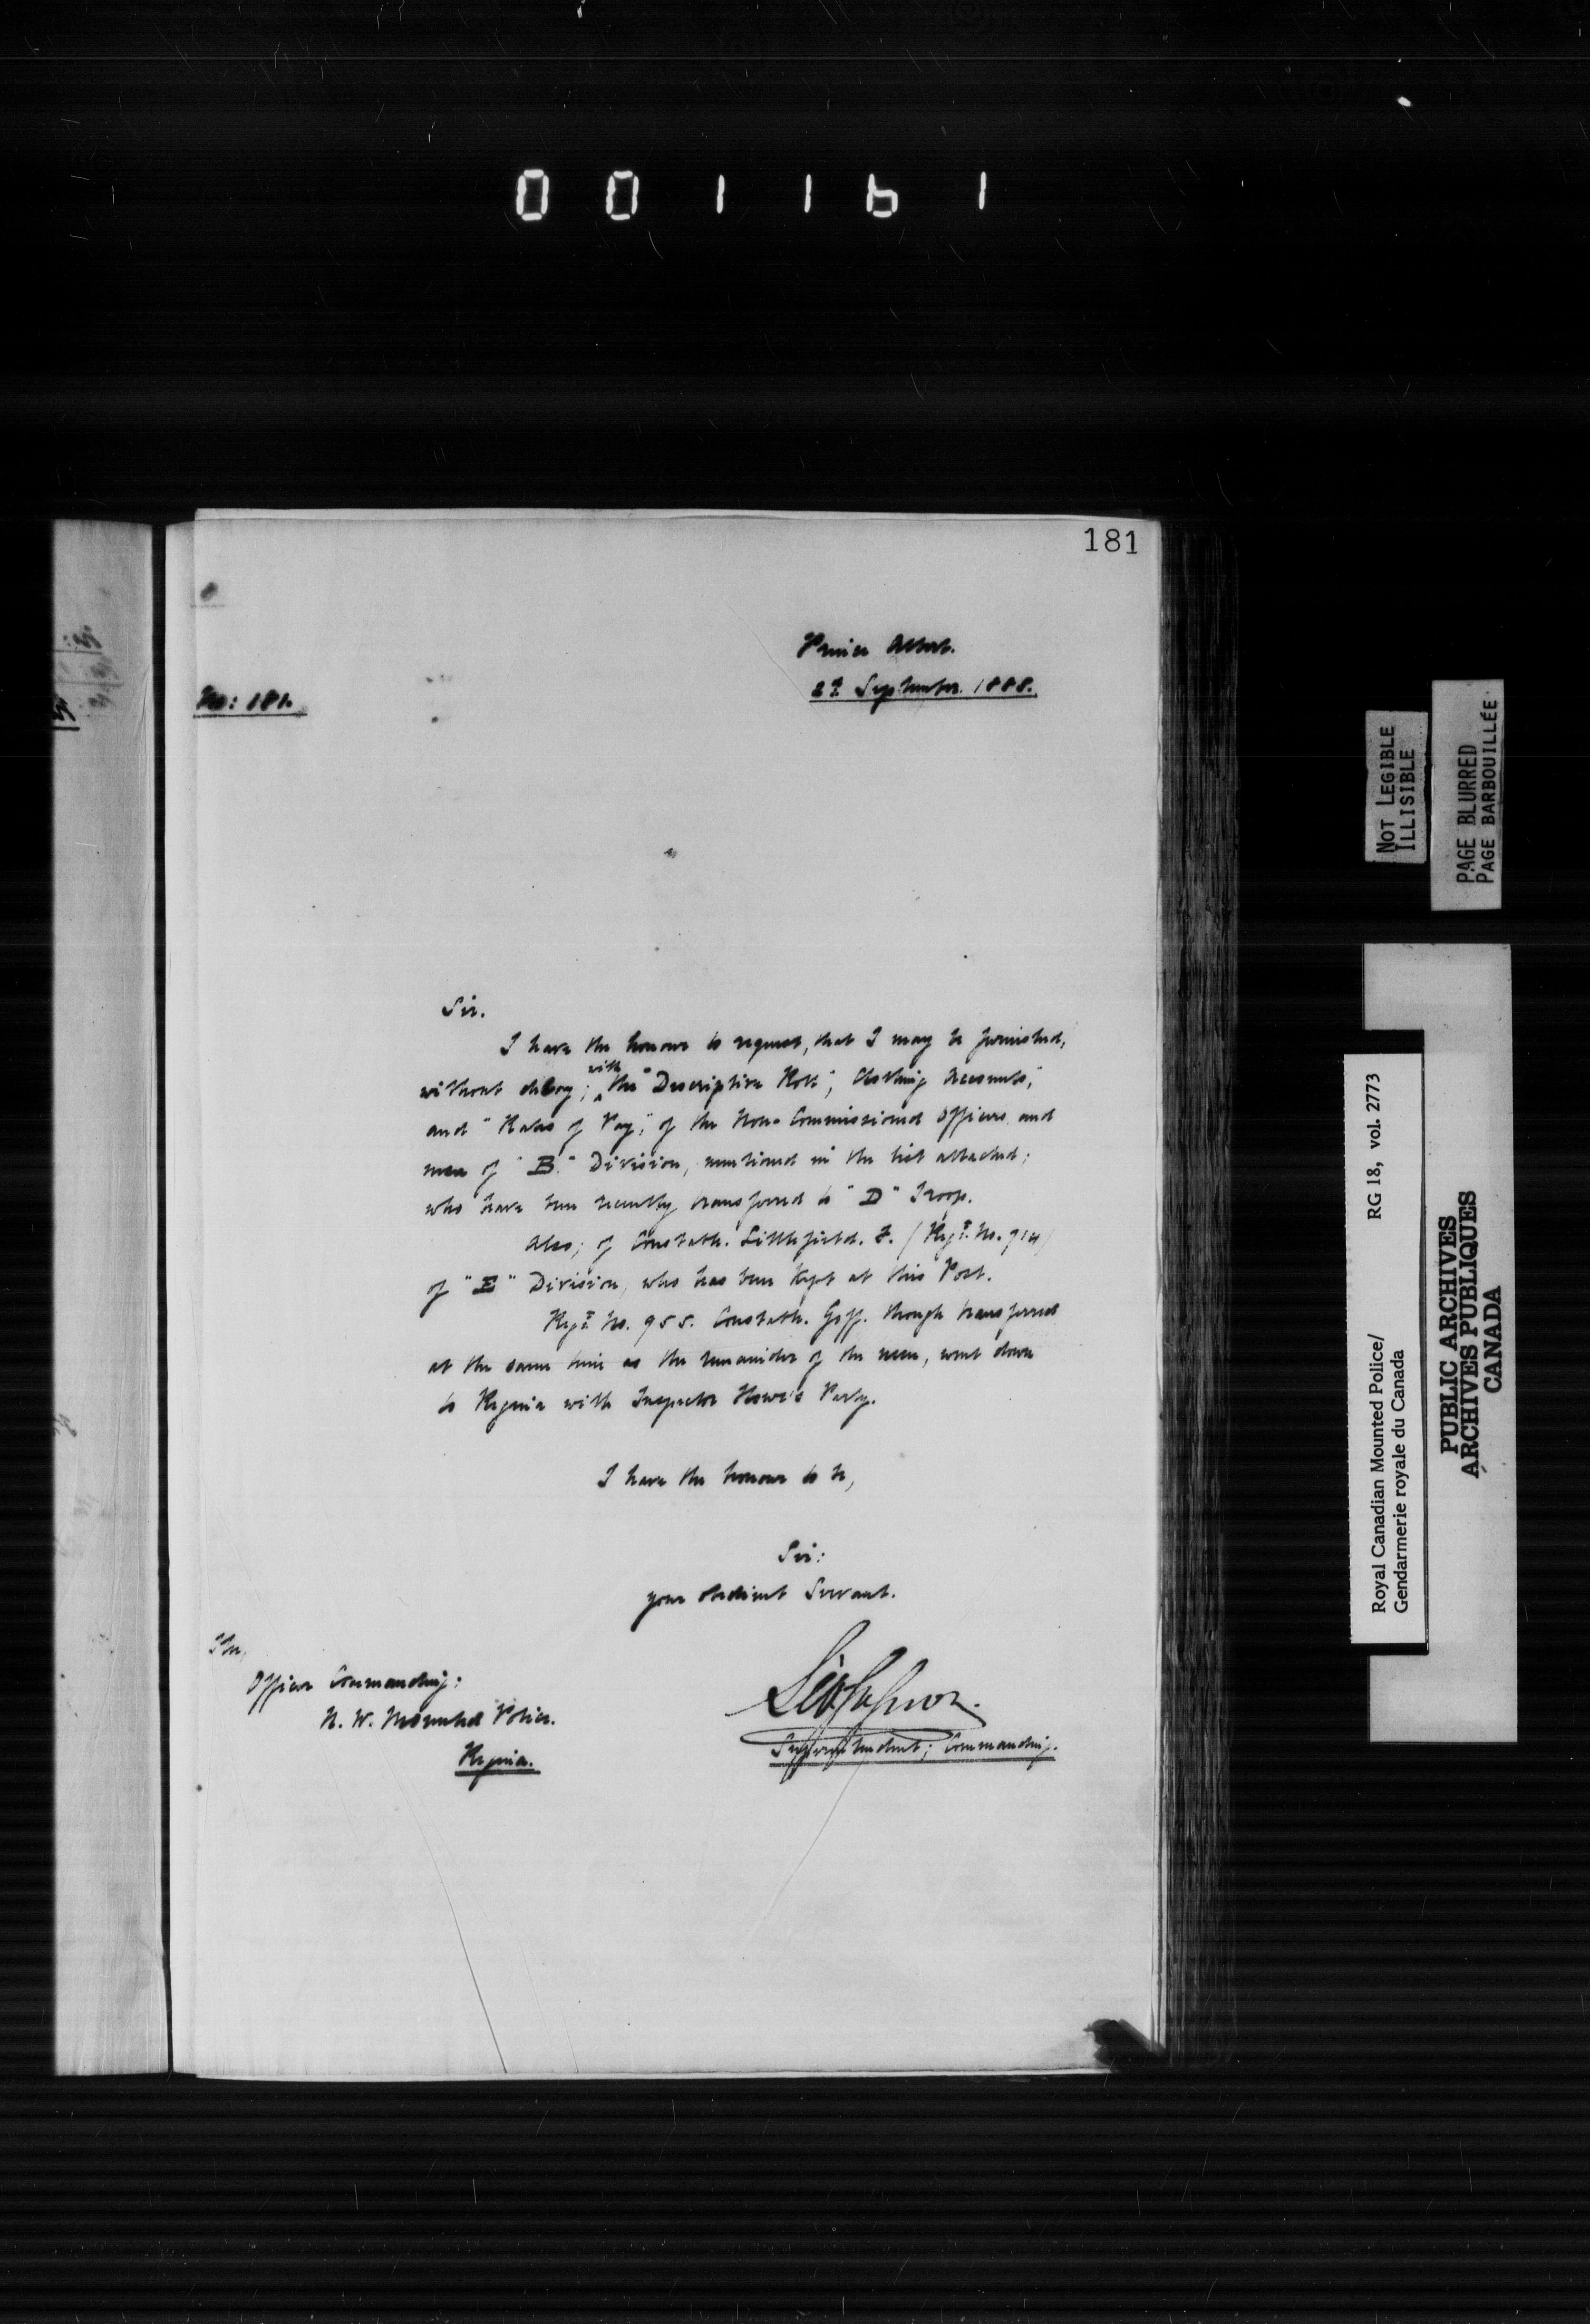 001161
181
Prince Albert.
2d September. 1885.
No: 181.
Sir.
I have the honour to request, that I may be furnished,
without delay; with the "Descriptive Roll", Clothing Accounts,"
and "Rates of Pay," of the Non-Commissioned Officers and
men of "B." Division, mentioned in the list attached;
who have been recently transferred to "D" Troop.
Also; of Constable. Littlefield. F. (Regt. No. 914)
of "E" Division, who has been kept at this Post.
Regt. No. 955. Constable. Goff. though transferred
at the same time as the remainder of the men, went down
to Regina with Inspector Howe's Party.
I have the honour to be,
Sir:
your obedient Servant.
The,
Officer Commanding:
N. W. Mounted Police.
Regina.
Superintendent; Commanding.
NOT LEGIBLE
ILLISIBLE
PAGE BLURRED
PAGE BARBOUILLÉE
Royal Canadian Mounted Police/ RG 18, vol. 2773
Gendarmerie royale du Canada
PUBLIC ARCHIVES
ARCHIVES PUBLIQUES
CANADA